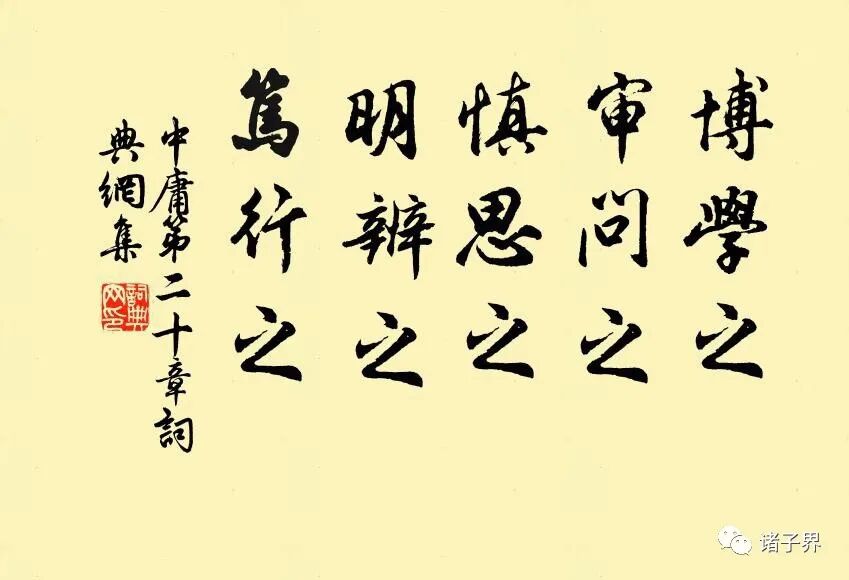 博學之
审問之
慎思之
明辨之
篤行之
中庸第二十章詞
典網集
詞典
网印
诸子界